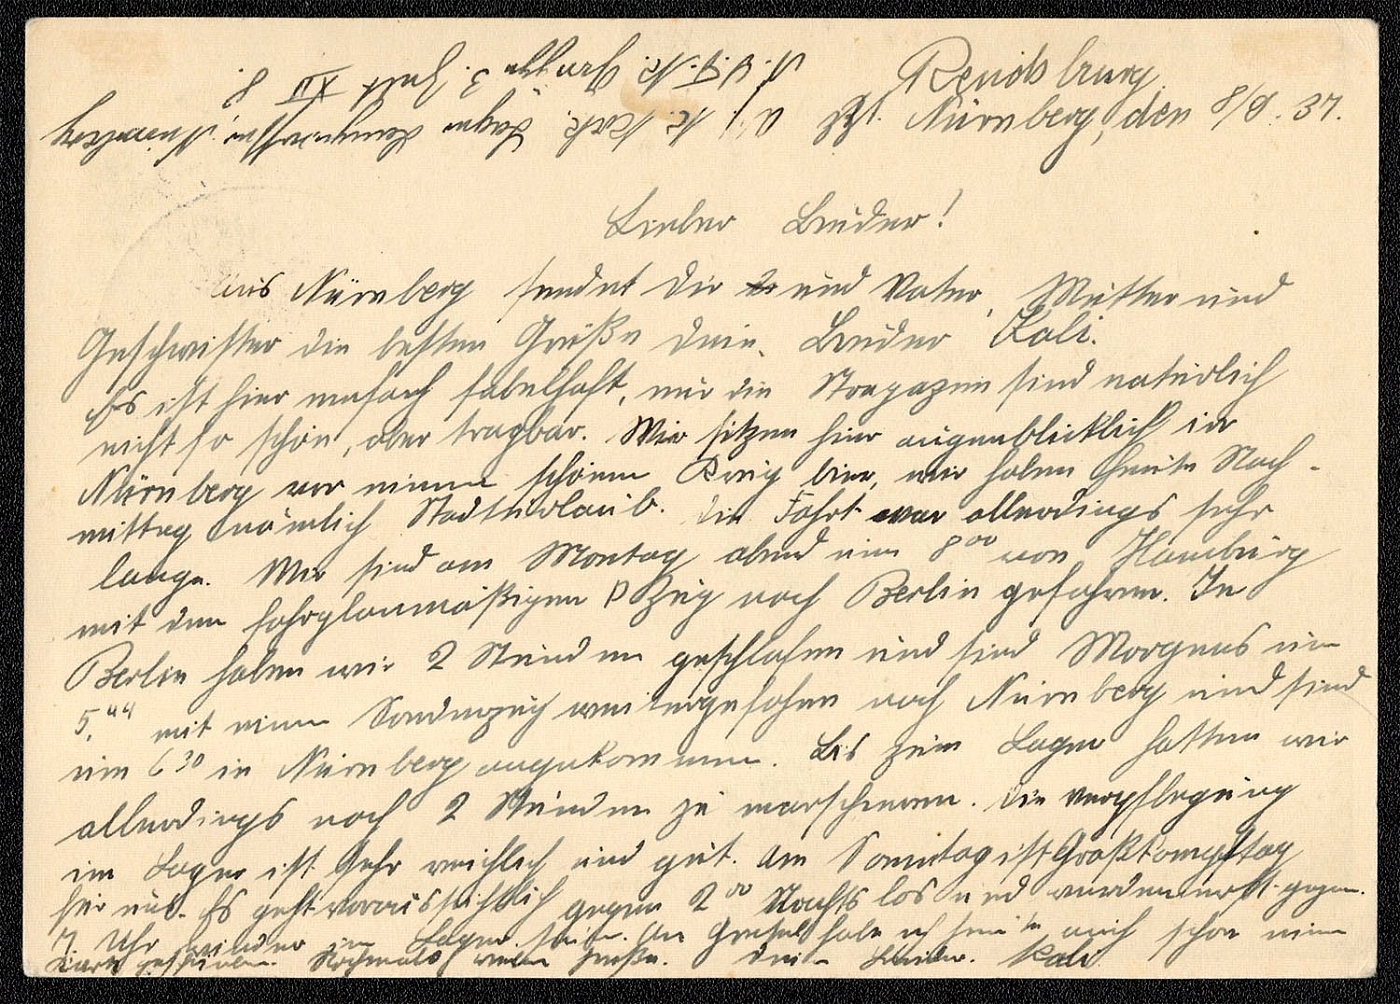 Rendsburg
zzt. Nürnberg, den 8/9. 37.
Lieber Bruder!
Aus Nürnberg sendet Dir und Vater, Mutter und
Geschwister die besten Grüße Dein Bruder Kali.
Es ist hier einfach fabelhaft, nur die Strapazen sind natürlich
nicht so schön, aber tragbar. Wir sitzen hier augenblicklich in
Nürnberg vor einem schönen Krug Bier, wir haben heute Nach-
mittag nämlich Stadturlaub. Die Fahrt war allerdings sehr
lange. Wir sind am Montag abend um 8⁰⁰ von Hamburg
mit dem fahrplanmäßigen D Zug nach Berlin gefahren. In
Berlin haben wir 2 Stunden geschlafen und sind Morgens um
5.⁴⁴ mit einem Sonderzug weitergefahren nach Nürnberg und sind
um 6³⁰ in Nürnberg angekommen. Bis zum Lager hatten wir
allerdings noch 2 Stunden zu marschieren. Die Verpflegung
im Lager ist sehr reichlich und gut. Am Sonntag ist Großkampftag
für uns. Es geht voraussichtlich gegen 2⁰⁰ Nachts los und werden erst gegen
7. Uhr wieder im Lager sein. An Gretel habe ich heute auch schon eine
Karte geschrieben. Nochmals viele Grüße. Dein Bruder Kali
Gruppe 3. Zelt XII 8.
Lager Langwasser, Nürnberg